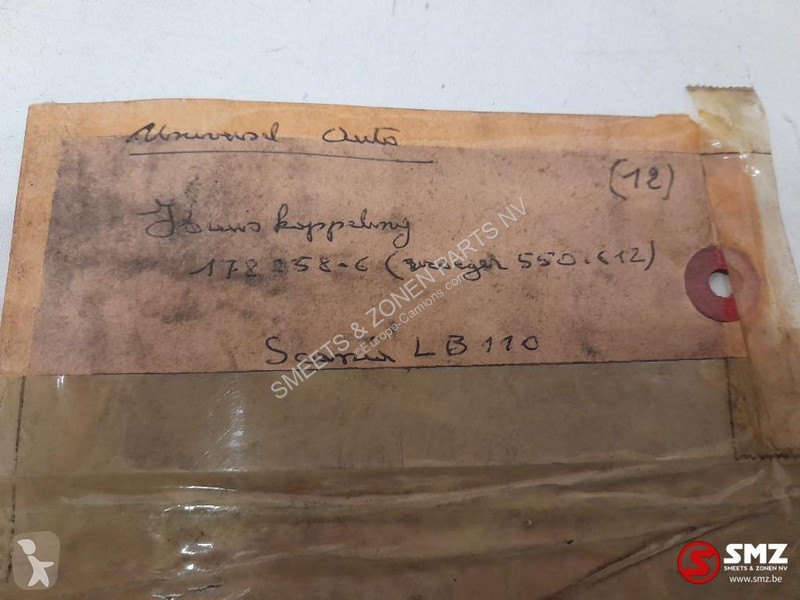 Universel Auto
(12)
koppeling
178258-6 (vroeger 550.612)
Scania LB 110
SMEETS & ZONEN PARTS NV
©Europe-Camions.com
SMZ
SMEETS & ZONEN NV
www.smz.be